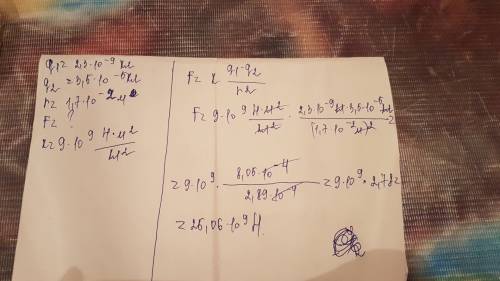 q₁ = 2,3·10⁻⁹ Кл
q₂ = 3,5·10⁻⁵ Кл
r = 1,7·10⁻² м
F = ?
k = 9·10⁹ Н·м²/Кл²
F = k q₁·q₂/r²
F = 9·10⁹ Н·м²/Кл² · 2,3·10⁻⁹Кл·3,5·10⁻⁵Кл/(1,7·10⁻²м)² =
= 9·10⁹ · 8,05·10⁻⁴/2,89·10⁻⁴ = 9·10⁹·2,78 =
= 25,06·10⁹ Н.